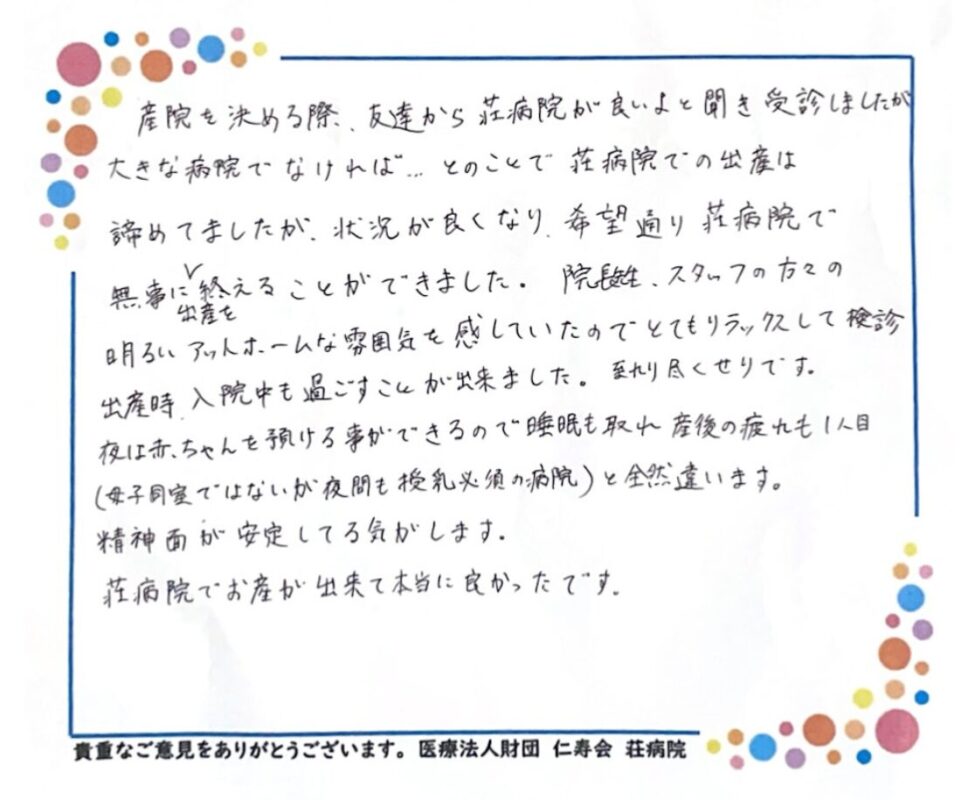 産院を決める際、友達から荘病院が良いよと聞き受診しましたが
大きな病院でなければ…とのことで荘病院での出産は
諦めてましたが、状況が良くなり、希望通り荘病院で
無事に出産を終えることができました。院長先生、スタッフの方々の
明るいアットホームな雰囲気を感じていたのでとてもリラックスして検診
出産時、入院中も過ごすことが出来ました。至れり尽くせりです。
夜は赤ちゃんを預ける事ができるので睡眠も取れ産後の疲れも1人目
(母子同室ではないが夜間も授乳必須の病院)と全然違います。
精神面が安定してる気がします。
荘病院でお産が出来て本当に良かったです。
貴重なご意見をありがとうございます。医療法人財団 仁寿会 荘病院